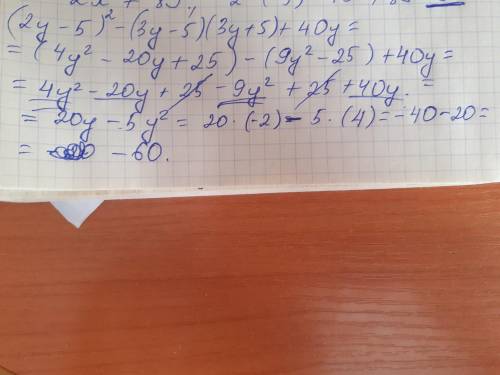 (2y - 5)² - (3y - 5)(3y + 5) + 40y =
= (4y² - 20y + 25) - (9y² - 25) + 40y =
= 4y² - 20y + 25 - 9y² + 25 + 40y. =
= 20y - 5y² = 20 · (-2) - 5 · (4) = -40 - 20 =
= - 60.